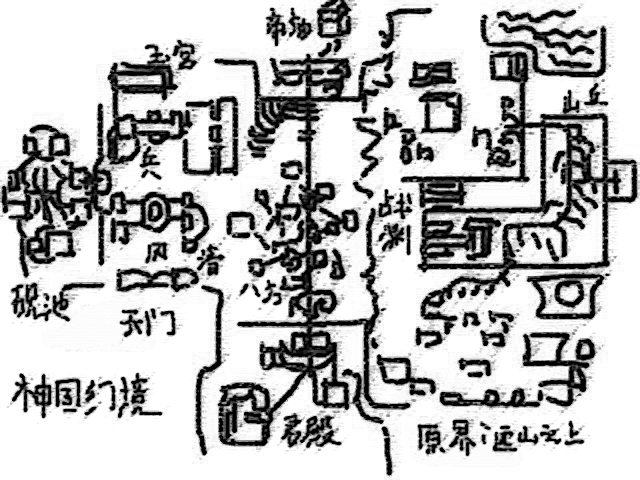 市场
玉宫
山丘
兵
战渊
风
八方
砚池
天门
神国幻境
君殿
原界:远山之上